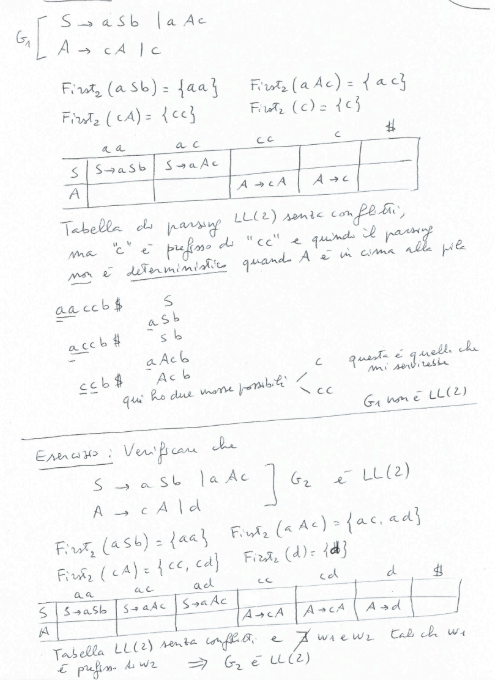 G₁ [ S → aSb | aAc
A → cA | c
First₂(aSb) = {aa} First₂(aAc) = {ac}
First₂(cA) = {cc} First₂(c) = {c}
aa ac cc c $
S S→aSb S→aAc
A A→cA A→c
Tabella di parsing LL(2) senza conflitti,
ma "c" è prefisso di "cc" e quindi il parsing
non è deterministico quando A è in cima alla pila
aaccb$ S
aSb
accb$ Sb
aAcb
ccb$ Acb
qui ho due mosse possibili < c questa è quella che mi servirebbe
cc
G₁ non è LL(2)
Esercizio: Verificare che
S → aSb | aAc ] G₂ è LL(2)
A → cA | d
First₂(aSb) = {aa} First₂(aAc) = {ac, ad}
First₂(cA) = {cc, cd} First₂(d) = {d}
aa ac ad cc cd d $
S S→aSb S→aAc S→aAc
A A→cA A→cA A→d
Tabella LL(2) senza conflitti e ∄ w₁ e w₂ tali che w₁
è prefisso di w₂ ⇒ G₂ è LL(2)